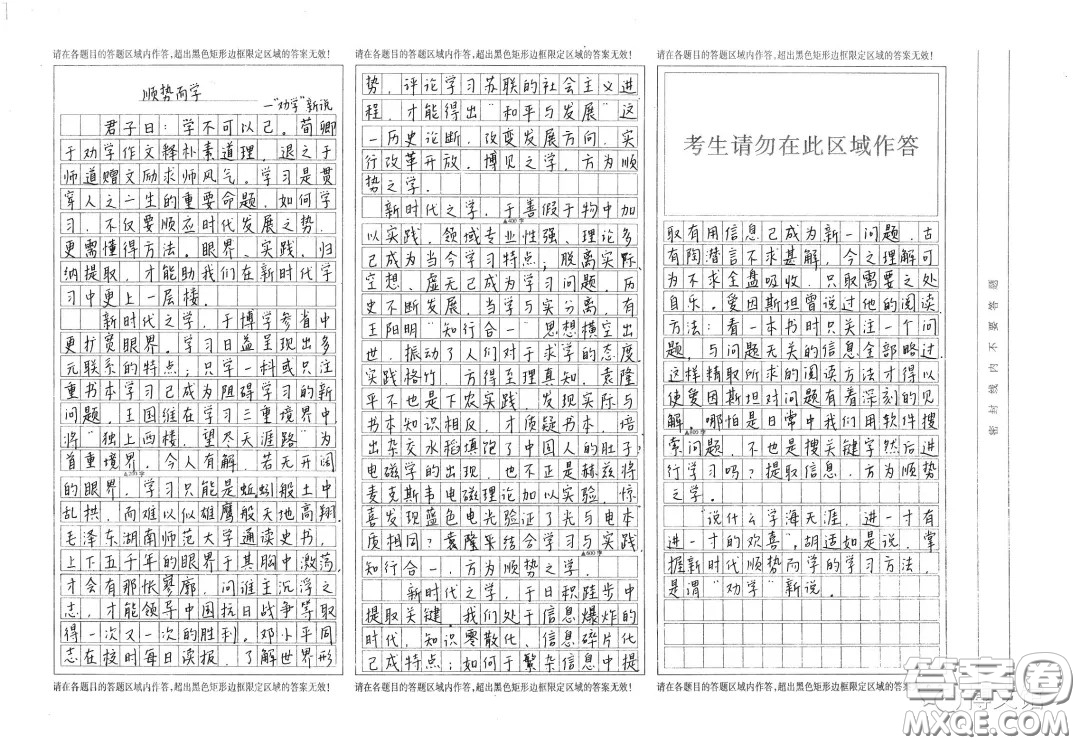 请在各题目的答题区域内作答,超出黑色矩形边框限定区域的答案无效!
顺势而学
——"劝学"新说
君子曰:学不可以已。荀卿
于劝学作文释朴素道理,退之于
师道赠文励求师风气。学习是贯
穿人之一生的重要命题,如何学
习,不仅要顺应时代发展之势,
更需懂得方法。眼界、实践、归
纳提取,才能助我们在新时代学
习中更上一层楼。
新时代之学,于博学参省中
更扩宽眼界。学习日益呈现出多
元联系的特点;只学一科或只注
重书本学习已成为阻碍学习的新
问题,王国维在学习三重境界中,
将"独上西楼,望尽天涯路"为
首重境界。今人有解,若无开阔
▲200字
的眼界,学习只能是蚯蚓般土中
乱拱,而难以似雄鹰般天地高翔。
毛泽东湖南师范大学通读史书,
上下五千年的眼界于其胸中激荡,
才会有那怅寥廓,问谁主沉浮之
志,才能领导中国抗日战争等取
得一次又一次的胜利。邓小平同
志在校时每日读报,了解世界形
请在各题目的答题区域内作答,超出黑色矩形边框限定区域的答案无效!
请在各题目的答题区域内作答,超出黑色矩形边框限定区域的答案无效!
势,评论学习苏联的社会主义进
程,才能得出"和平与发展"这
一历史论断,改变发展方向,实
行改革开放。博见之学,方为顺
势之学。
新时代之学,于善假于物中加
▲400字
以实践。领域专业性强、理论多
已成为当今学习特点;脱离实际、
空想、虚无已成为学习问题。历
史不断发展,当学与实分离,有
王阳明"知行合一"思想横空出
世,振动了人们对于求学的态度。
实践格竹,方得至理真知。袁隆
平不也是下农实践,发现实际与
书本知识相反,才质疑书本,培
出杂交水稻填饱了中国人的肚子;
电磁学的出现,也不正是赫兹将
麦克斯韦电磁理论加以实验,惊
喜发现蓝色电光验证了光与电本
质相同?袁隆平结合学习与实践,
▲600字
知行合一,方为顺势之学。
新时代之学,于日积跬步中
提取关键。我们处于信息爆炸的
时代,知识零散化、信息碎片化
已成特点;如何于繁杂信息中提
请在各题目的答题区域内作答,超出黑色矩形边框限定区域的答案无效!
请在各题目的答题区域内作答,超出黑色矩形边框限定区域的答案无效!
考生请勿在此区域作答
取有用信息已成为新一问题。古
有陶潜言不求甚解,今之理解可
为不求全盘吸收,只取需要之处
自乐。爱因斯坦曾说过他的阅读
方法:看一本书时只关注一个问
题,与问题无关的信息全部略过。
这样精取所求的阅读方法才得以
使爱因斯坦对问题有着深刻的见
解。哪怕是日常中我们用软件搜
▲800字
索问题,不也是搜关键字然后进
行学习吗?提取信息,方为顺势
之学。
"说什么学海无涯,进一寸有
进一寸的欢喜",胡适如是说。掌
握新时代顺势而学的学习方法,
是谓"劝学"新说。
请在各题目的答题区域内作答,超出黑色矩形边框限定区域的答案
密封线内不要答题
答案圈
MXQE.COM